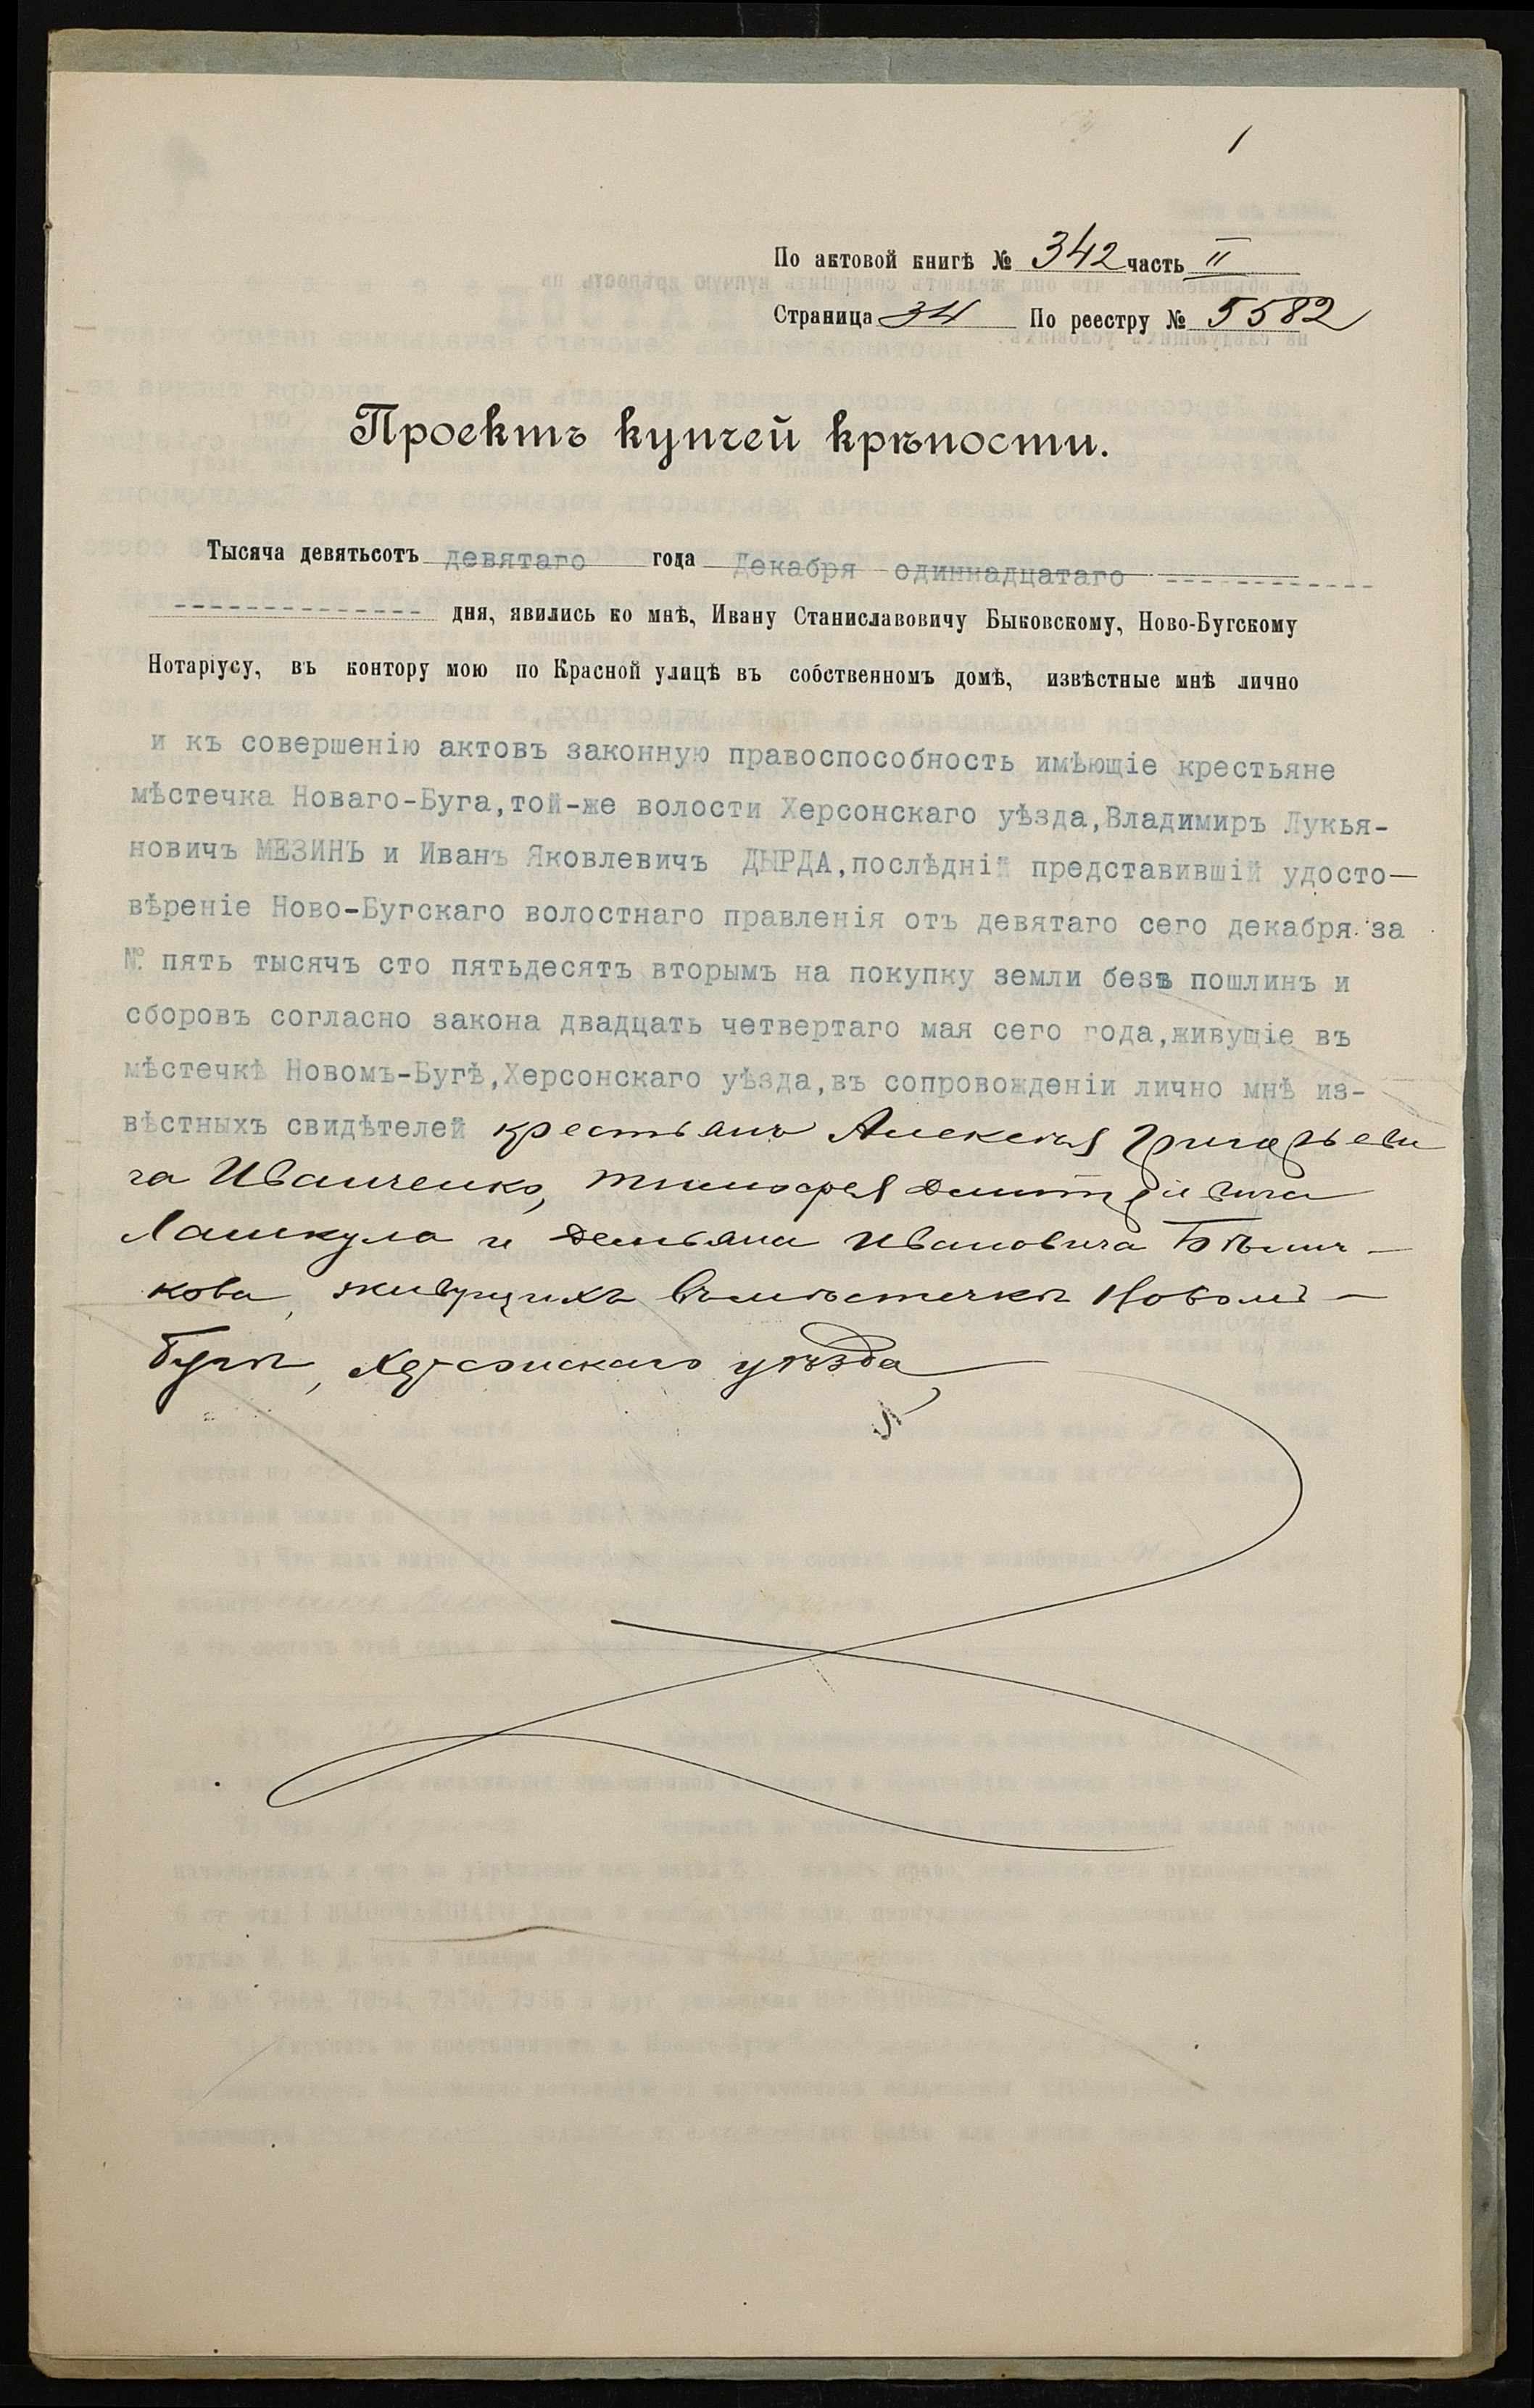 1
По актовой книгѣ № 342 часть II
Страница 34 По реестру № 5582
Проектъ купчей крѣпости.
Тысяча девятьсотъ девятаго года Декабря одиннадцатаго
дня, явились ко мнѣ, Ивану Станиславовичу Быковскому, Ново-Бугскому
Нотаріусу, въ контору мою по Красной улицѣ въ собственномъ домѣ, извѣстные мнѣ лично
и къ совершенію актовъ законную правоспособность имѣющіе крестьяне
мѣстечка Новаго-Буга,той-же волости Херсонскаго уѣзда,Владимиръ Лукья-
новичъ МЕЗИНЪ и Иванъ Яковлевичъ ДЫРДА,послѣдній представившій удосто—
вѣреніе Ново-Бугскаго волостнаго правленія отъ девятаго сего декабря за
№ пять тысячъ сто пятьдесятъ вторымъ на покупку земли безъ пошлинъ и
сборовъ согласно закона двадцать четвертаго мая сего года,живущіе въ
мѣстечкѣ Новомъ-Бугѣ,Херсонскаго уѣзда,въ сопровожденіи лично мнѣ из-
вѣстныхъ свидѣтелей крестьянъ Алексѣя Григорьеви
ча Иванченко, Тимофея Дмитріевича
Лашкула и Демьяна Ивановича
кова, живущихъ въ мѣстечкѣ Новомъ—
Бугѣ, Херсонскаго уѣзда